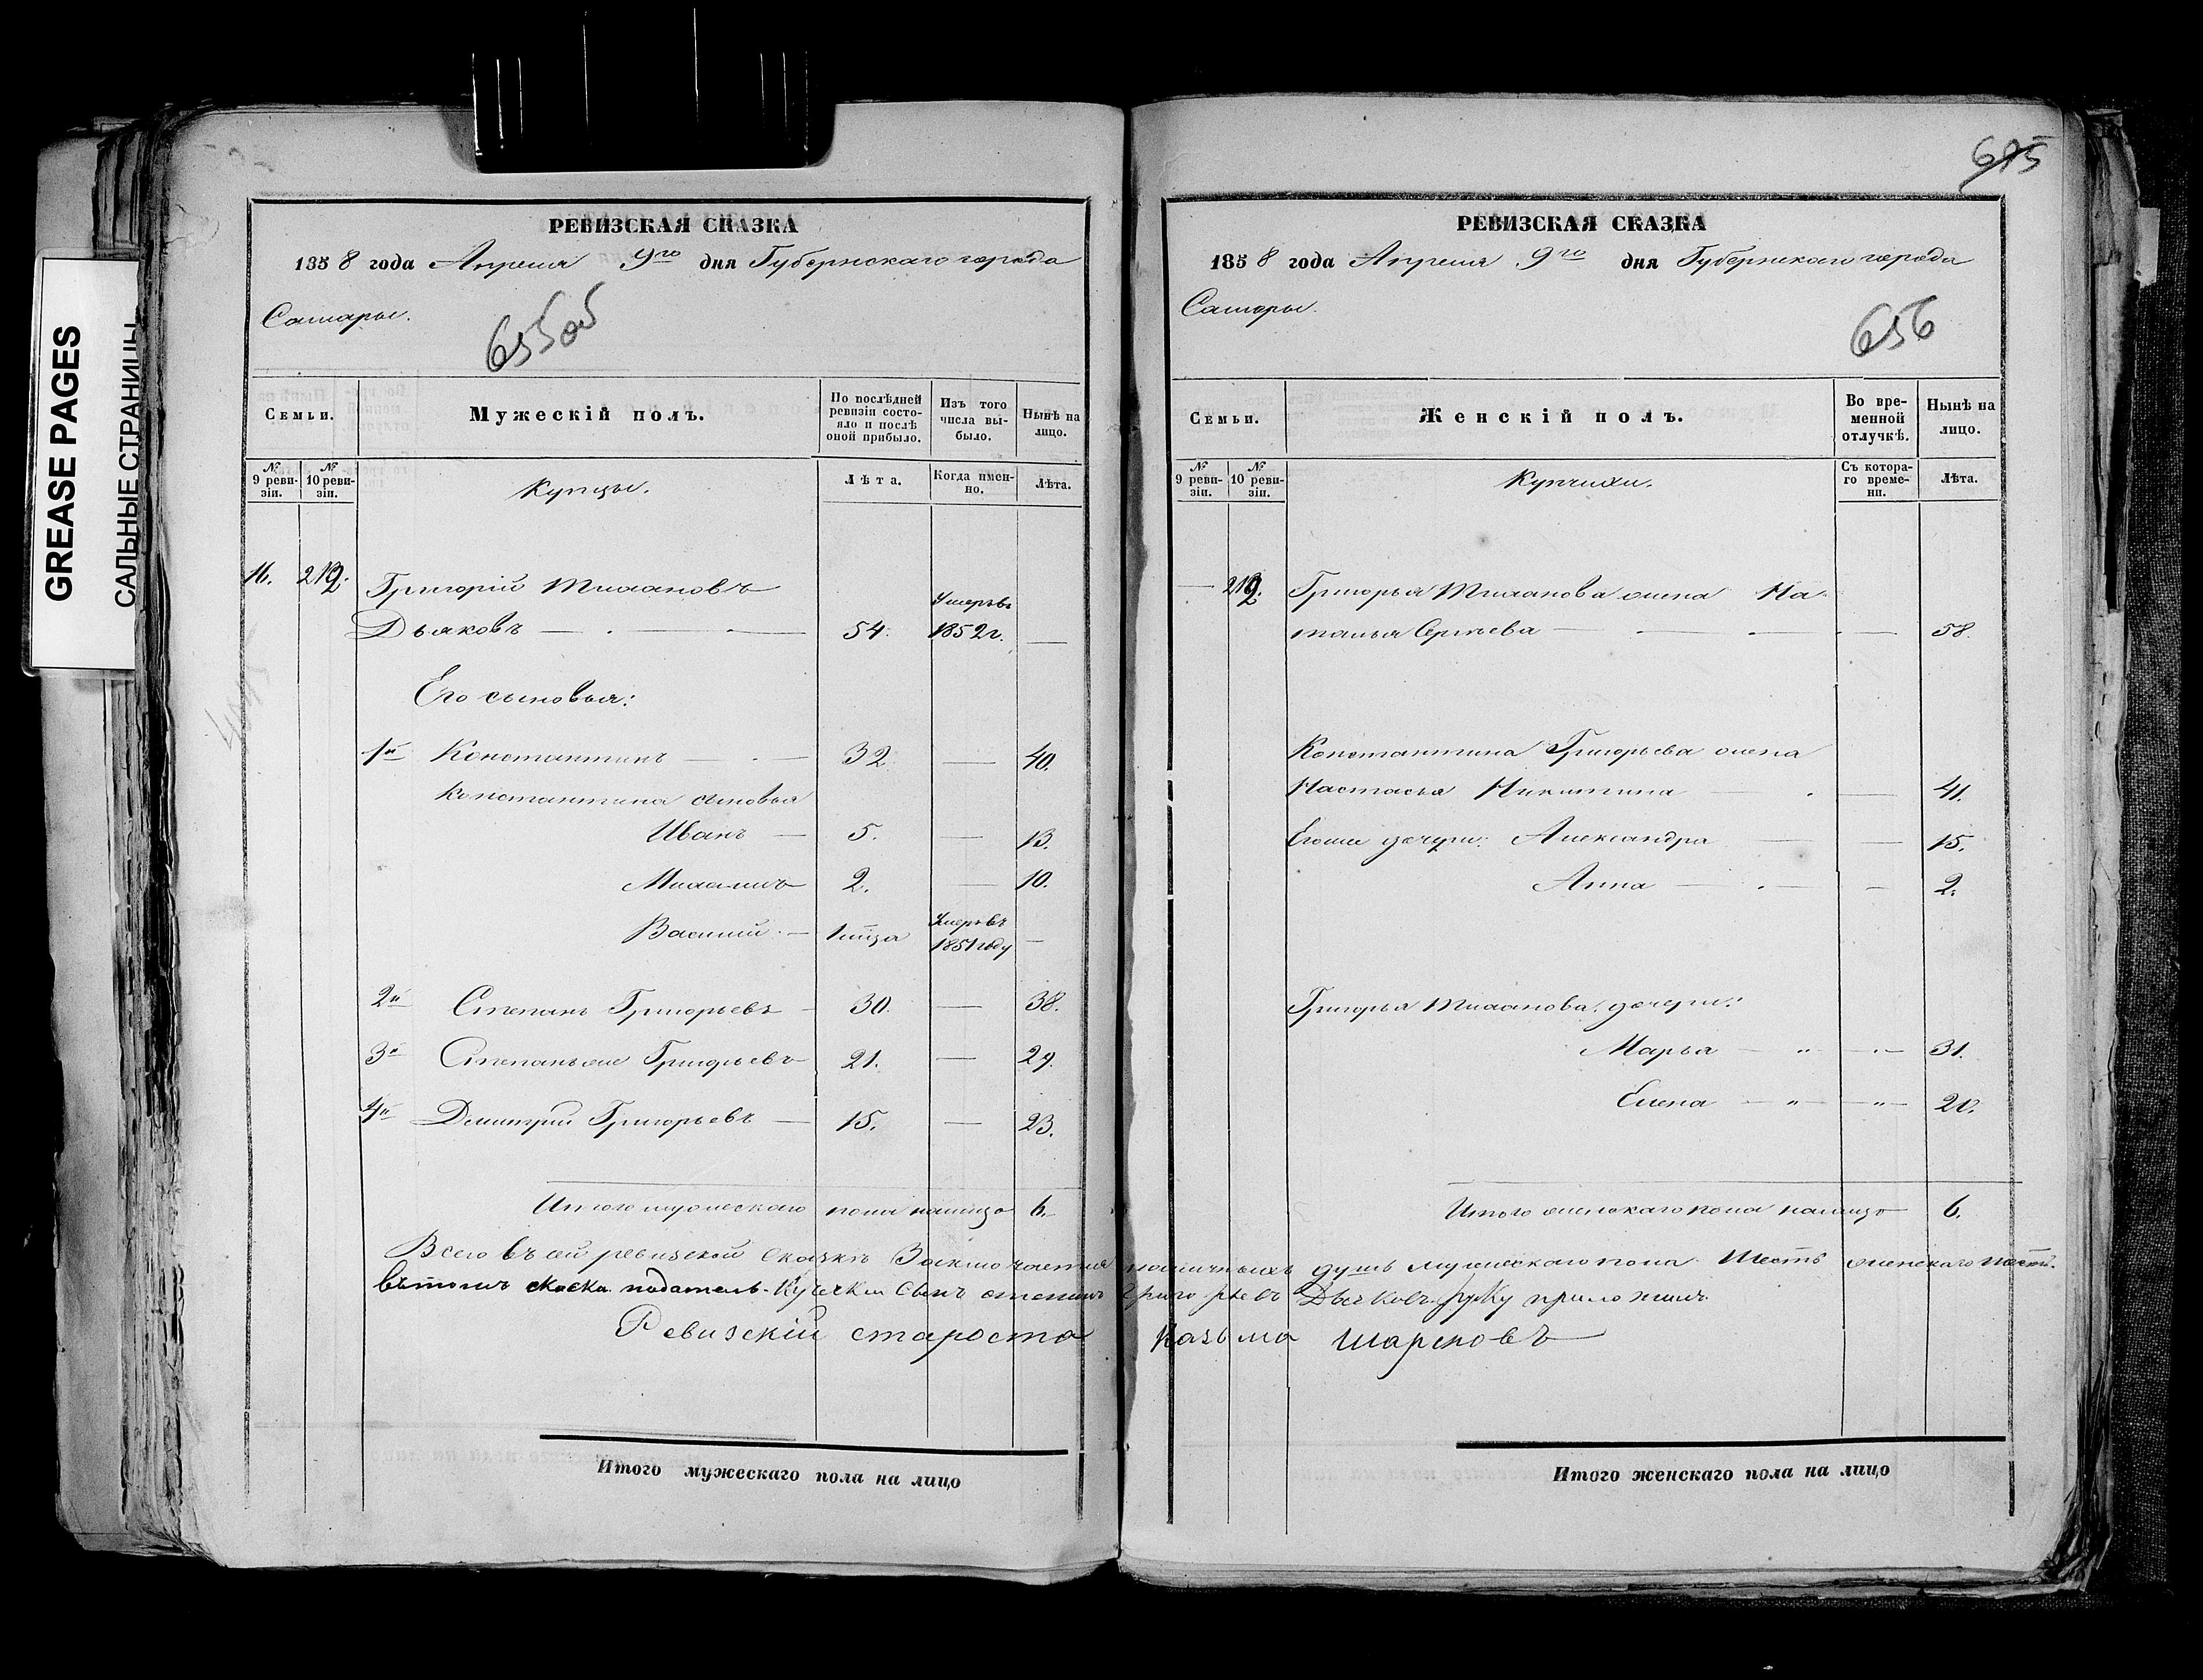 GREASE PAGES
САЛЬНЫЕ СТРАНИЦЫ
РЕВИЗСКАЯ СКАЗКА
1858 года Апреля 9го дня Губернскаго города
Самары.
655об
Семьи.
Мужескій полъ.
По послѣдней ревизіи состояло и послѣ оной прибыло.
Изъ того числа выбыло.
Нынѣ на лицо.
№ 9 ревизіи.
№ 10 ревизіи.
Купцы.
Лѣта.
Когда именно.
Лѣта.
16. 212. Григорій
Дьяковъ — 54. Умеръ въ 1852 г. —
Его сыновья:
1й Константинъ — 32. — 40.
Константина сыновья
Иванъ — 5. — 13.
Михаилъ 2. — 10.
Василий — Умеръ въ 1851 году —
2й Степанъ Григорьевъ — 30. — 38.
3й Степанъ же Григорьевъ 21. — 29.
4й Дмитрий Григорьевъ — 15. — 23.
Итого мужескаго пола налицо 6.
Итого мужескаго пола на лицо
675
РЕВИЗСКАЯ СКАЗКА
1858 года Апреля 9го дня Губернскаго города
Самары.
656
Семьи.
Женскій полъ.
Во временной отлучкѣ.
Нынѣ на лицо.
№ 9 ревизіи.
№ 10 ревизіи.
Купчихи.
Съ котораго времени.
Лѣта.
— 212. Григорья жена На-
талья Сергѣева — — 58.
Константина Григорьева жена
Настасья Никитина — 41.
Егоже дочери: Александра — — 15.
Анна — — 2.
Григорья дочери:
Марья — " — 31.
Елена — " — " —
Итого женскаго пола налицо 6.
Всего въ сей ревизской сказкѣ Заключается наличныхъ душъ мужескаго пола Шесть женскаго
въ томъ скаска податель Сынъ степанъ Григорьевъ Дьяковъ руку приложилъ
Ревизскій староста Козьма
Итого женскаго пола на лицо